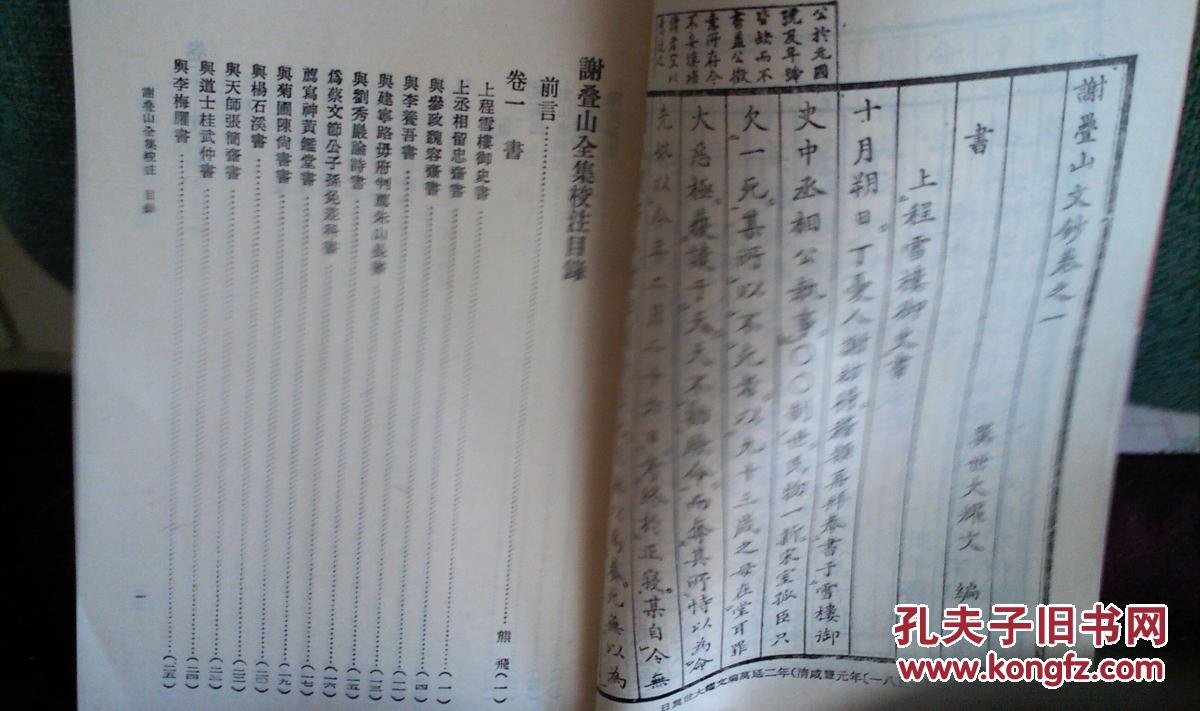 公於元國
號及年號
皆缺而不
書蓋公微
意所存今
不妄填補
謝疊山文鈔卷之一
異世大耀文 編
書
上程雪樓御史書
十月朔日丁憂人謝枋得稽顙再拜奉書于雪樓御
史中丞相公執事○○制世民物一新宋室孤臣只
欠一死某所以不死者以九十三歲之母在堂耳罪
大惡極獲譴于天天不勦絕命而奪其所恃以為命
先妣以今年二月二十六日考終於正寢某自今無
謝疊山全集校注目錄
前言 熊飛(一)
卷一 書
上程雪樓御史書(一)
上丞相留忠齋書(四)
與參政魏容齋書
與李養吾書
與建寧路毋府判薦朱山長書
與劉秀巖論詩書
為蔡文節公子孫免差科書(一六)
薦寫神黃鑑堂書(一七)
與菊圃陳尚書書(一九)
與楊石溪書(二〇)
與天師張簡齋書
與道士桂武仲書(二四)
與李梅隱書(二五)
謝疊山全集校注 目錄
一
孔夫子旧书网
kongfz.com